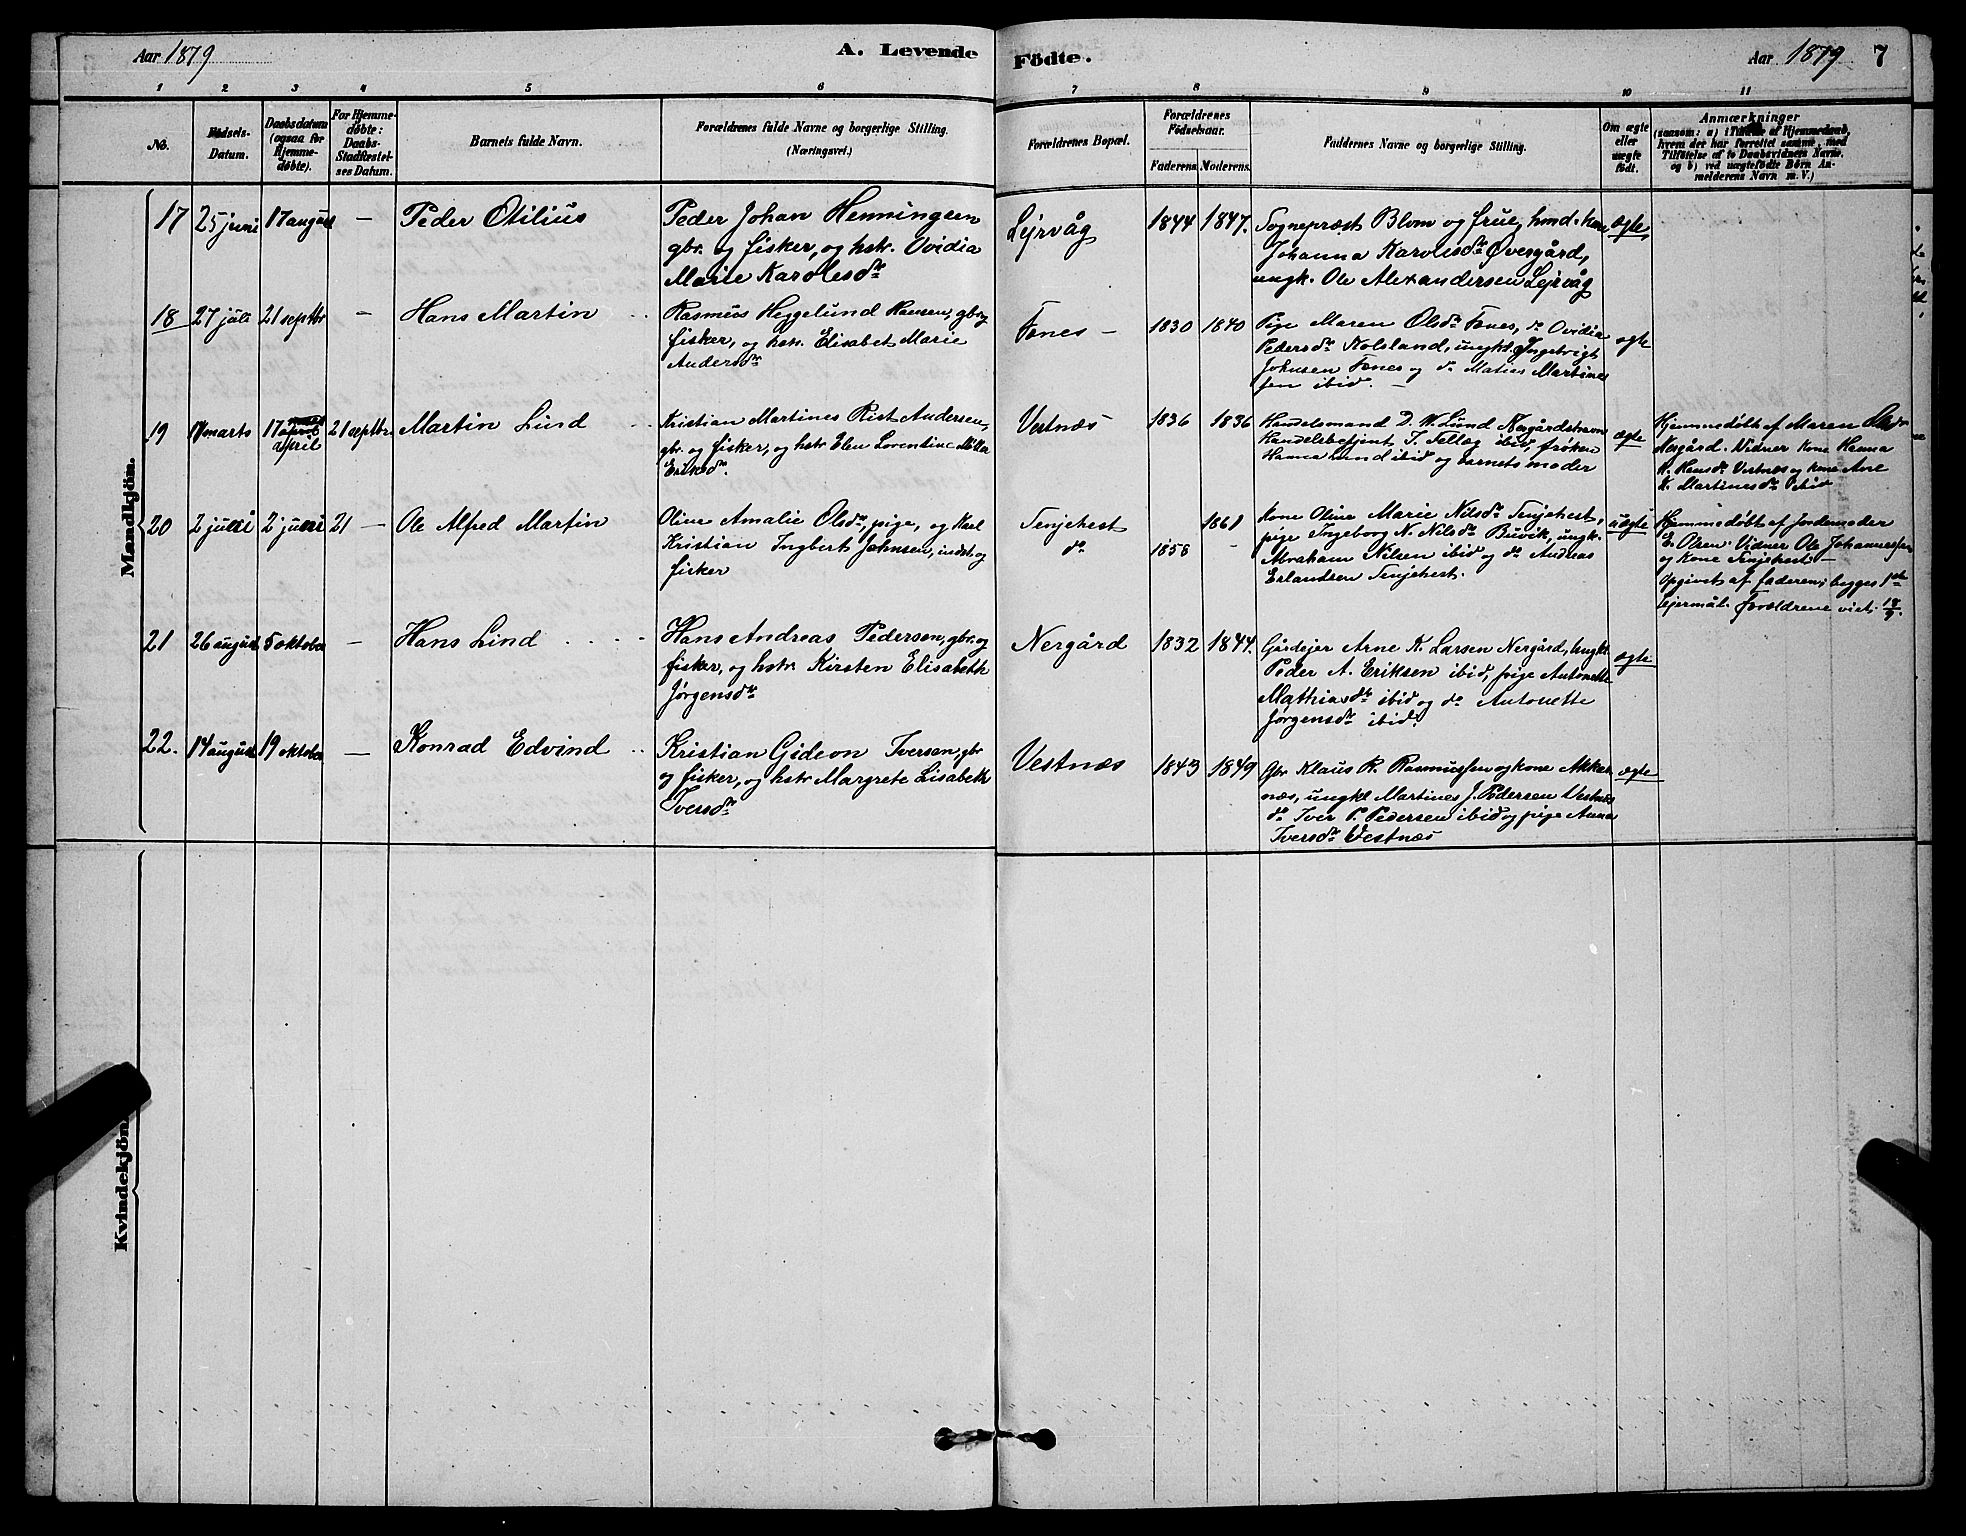 Aar 1879
A. Levende
Födte.
Aar 1879 7
1 2 3 4 5 6 7 8 9 10 11
No.
Fødsels-
Datum.
Daabsdatum
(ogsaa for
Hjemme-
døbte).
For Hjemme-
døbte:
Daabs-
Stadfæstel-
ses Datum.
Barnets fulde Navn.
Forældrenes fulde Navne og borgerlige Stilling.
(Næringsvei.)
Forældrenes Bopæl.
Forældrenes
Fødselsaar.
Faderens. Moderens.
Faddernes Navne og borgerlige Stilling.
Om ægte
eller
uægte
født.
Anmærkninger
(saasom: a) i Tilfælde af Hjemmedaab,
hvem der har forrettet samme, med
Tilføielse af to Daabsvidners Navne,
og b) ved uægtefødte Børn An-
melderens Navn m. V.)
Mandkjön.
17 25 juni 17 august — Peder Otilius
Peder Johan Henningsen
gbr. og fisker, og hstr. Ovidia
Marie Karolesdr
Lejrvåg
1844 1847.
Sognepræst Blom og frue, hmd. kone
Johanna Karolisdr Øvergård,
ungk. Ole Alexandersen Lejrvåg
ægte
18 27 juli 21 septbr — Hans Martin
Rasmus Heggelund Hansen, gbr. og
fisker, og hstr. Elisabet Marie
Andersdr
Fones —
1830 1840
Pige Maren Olsdr Fones, do Ovidia
Pedersdr Kolsland, ungkl. Ingebrigt
Johnsen Fones og do Matias Martines
sen ibid. —
ægte
19 17 marts 17 april
april
21 septbr. Martin Lind
Kristian Martines Rist Andersen,
gbr. og fisker, og hstr Elen Lorentine Möller
Eriksdr.
Vestnæs
1836 1836
Handelsmand D. W. Lund Nergårdshavn
Handelsbetjent J. Selleg ibid, frøken
Hanna Lund ibid og barnets moder
ægte
Hjemmedøbt af Maren Olsdr
Nergård. Vidner kone Hanna
K. Hansdr Vestnæs og kone Ane
K. Martinesdr ibid
20 2 juni 2 juni 21 — Ole Alfred Martin
Oline Amalie Olsdr, pige, og Karl
Kristian Ingbert Johnsen, indst. og
fisker
Tenjehest
do
1861
1858 —
Kone Oline Marie Nilsdr Tenjehest,
pige Ingeborg N. Nilsdr Buvik, ungk.
Abraham Nilsen ibid og do Andreas
Erlandsen Tenjehest.
uægte
Hjemmedøbt af Jordemoder
E. Olsen. Vidner Ole Johannessen
og kone Tenjehest —
opgivet af faderen; begges 1ste
Lejermål. Forældrene viet 18/9.
21 26 august 5 oktober — Hans Lind
Hans Andreas Pedersen, gbr. og
fisker, og hstr Kirsten Elisabeth
Jørgensdr
Nergård
1832 1844.
Gårdejer Arne K. Larsen Nergård, ungkl.
Peder A. Eriksen ibid, pige Antonette
Mathiasdr ibid og do Antonette
Jørgensdr ibid.
ægte
22. 14 august 19 oktober — Konrad Edvind
Kristian Gideon Iversen, gbr
og fisker, og hstr Margrete Lisabeth
Iversdr
Vestnæs
1843 1849
Gbr Klaus R. Rasmussen og kone Akker
næs, ungkl Martines J. Pedersen Vestnæs
do Iver P. Pedersen ibid og pige Anna
Iversdr Vestnæs
ægte
Kvindekjön.